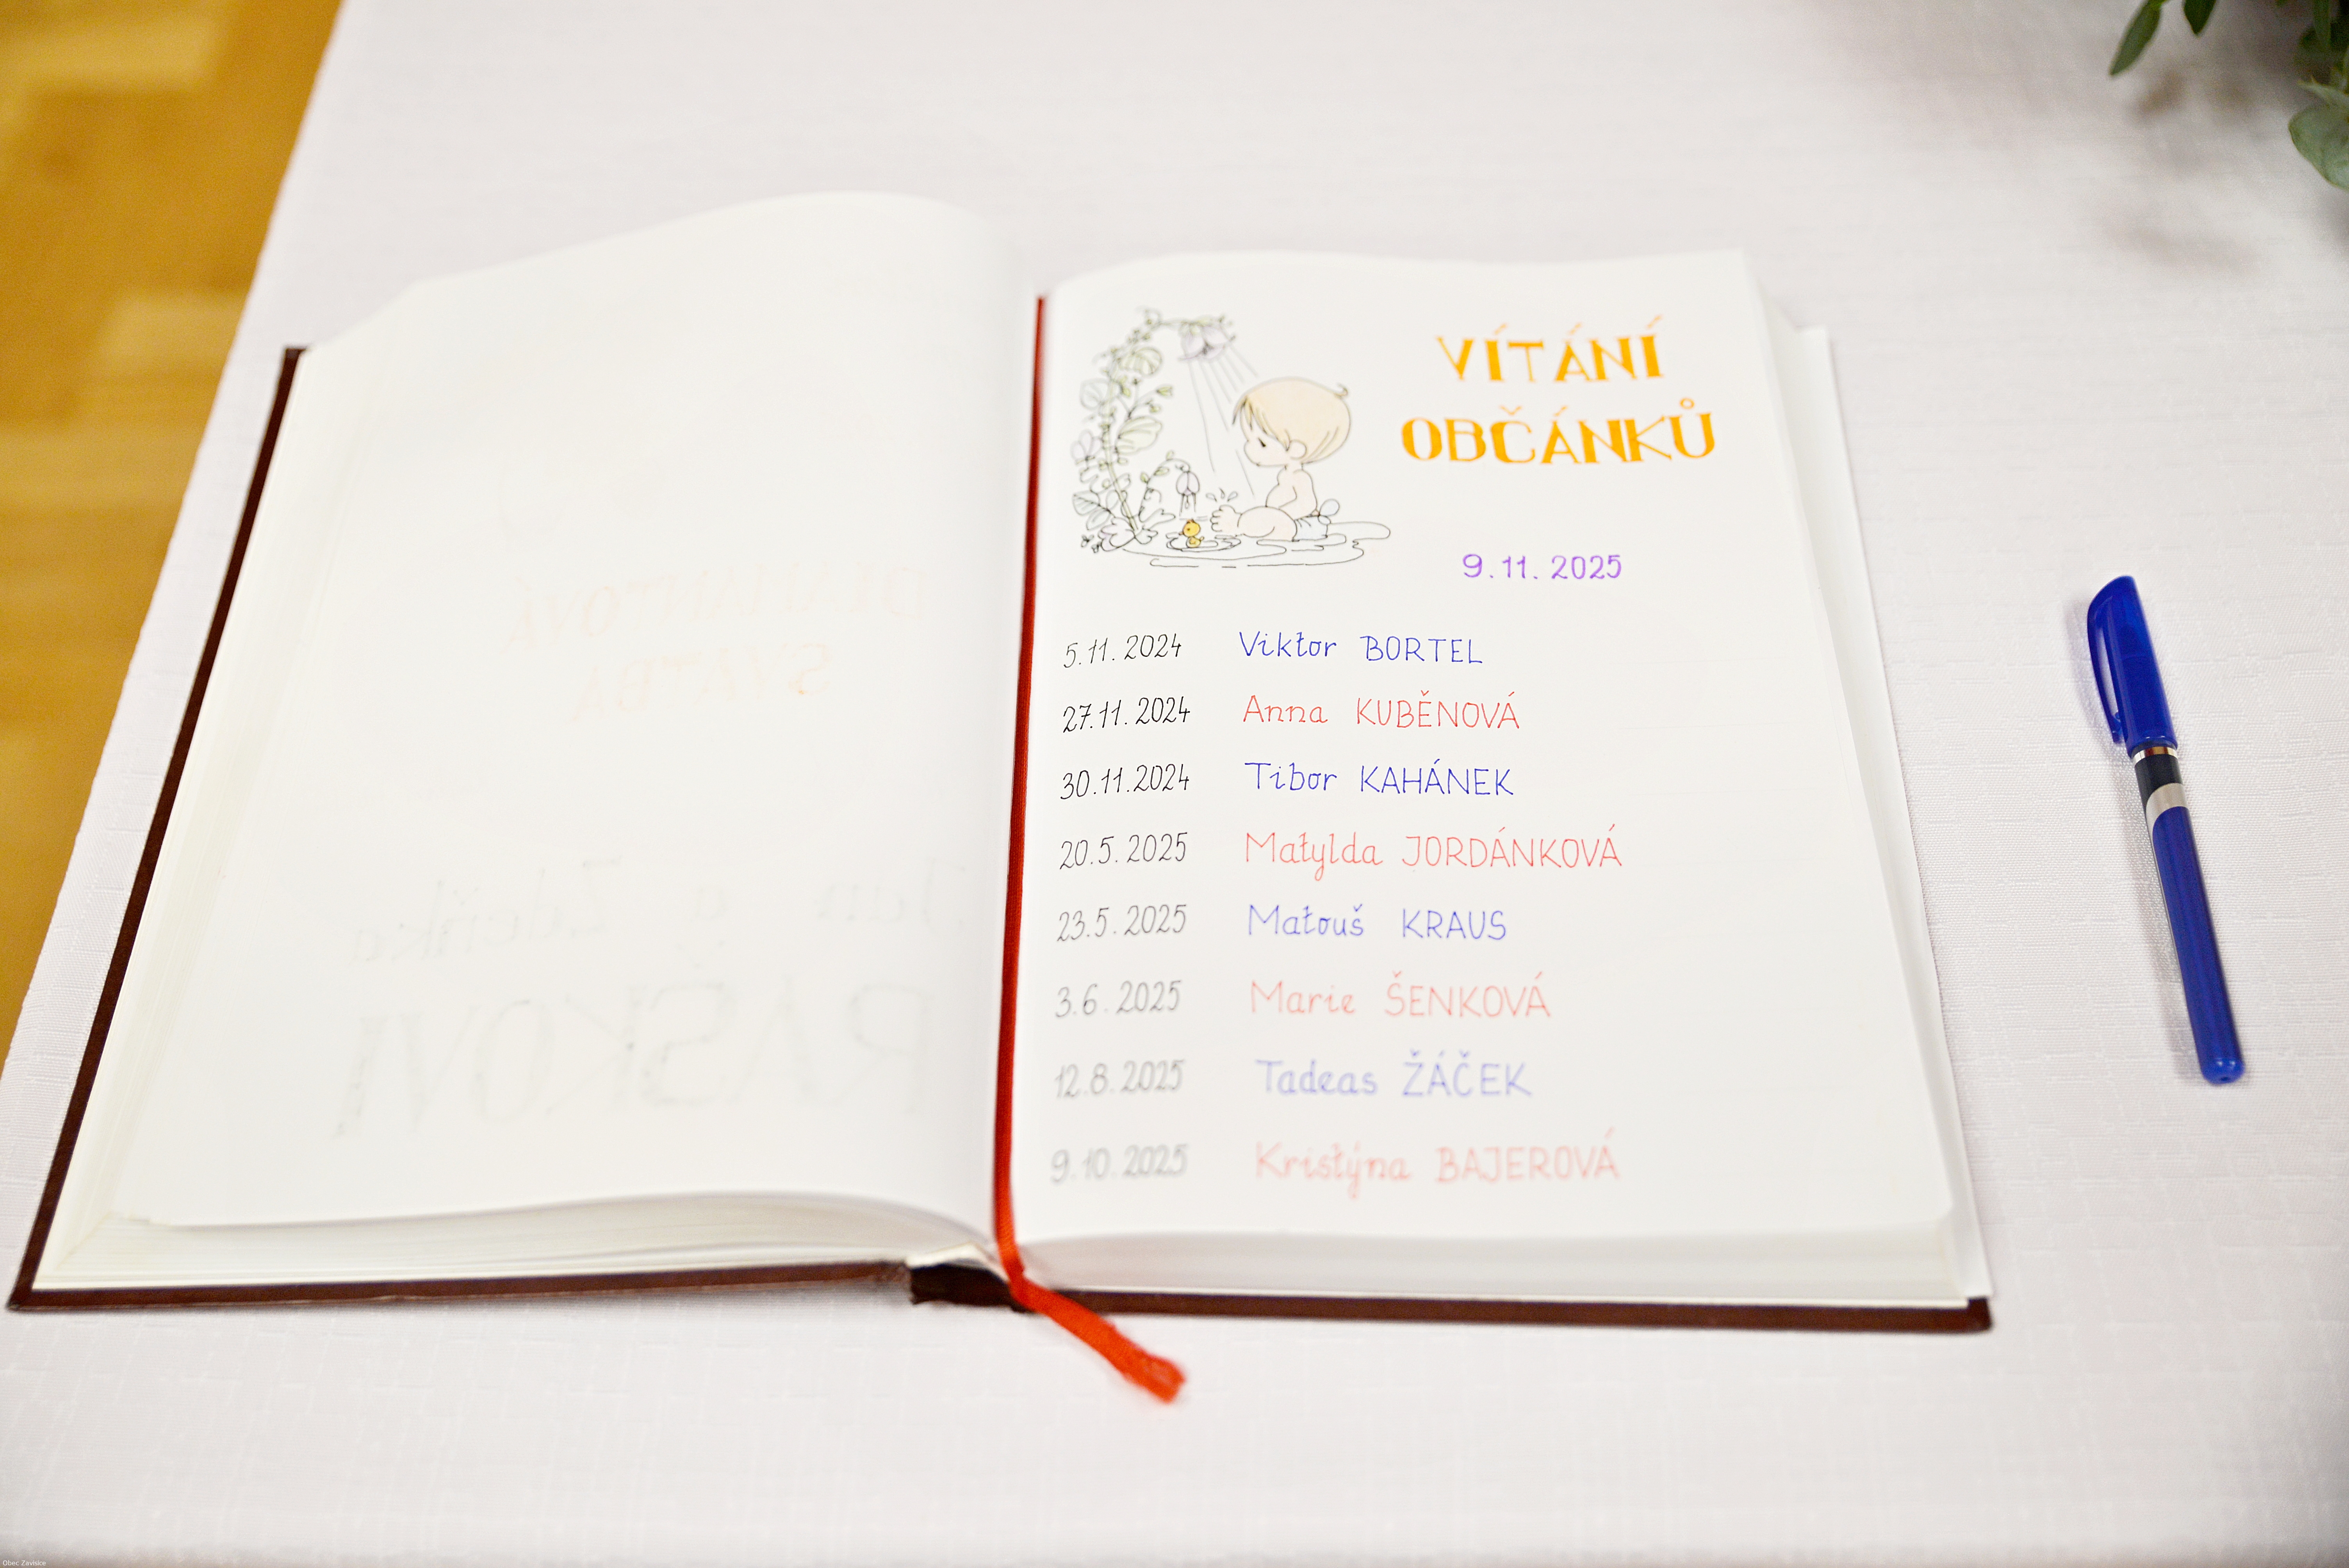 VÍTÁNÍ
OBČÁNKŮ
9.11.2025
5.11.2024 Viktor BORTEL
27.11.2024 Anna KUBĚNOVÁ
30.11.2024 Tibor KAHÁNEK
20.5.2025 Matylda JORDÁNKOVÁ
23.5.2025 Matouš KRAUS
3.6.2025 Marie ŠENKOVÁ
12.8.2025 Tadeas ŽÁČEK
9.10.2025 Kristýna BAJEROVÁ
Obec Zavisice